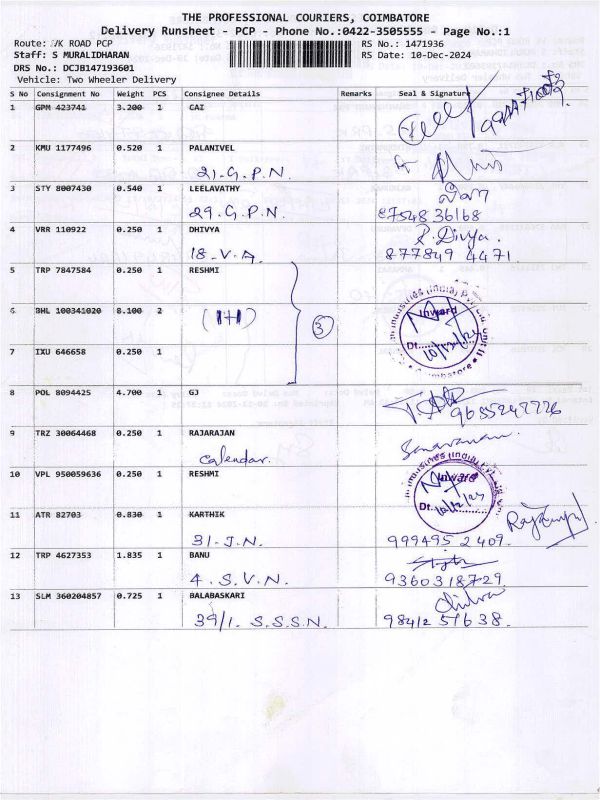 THE PROFESSIONAL COURIERS, COIMBATORE
Delivery Runsheet - PCP - Phone No.:0422-3505555 - Page No.:1
Route: VK ROAD PCP RS No.: 1471936
Staff: S MURALIDHARAN RS Date: 10-Dec-2024
DRS No.: DCJB147193601
Vehicle: Two Wheeler Delivery
S No Consignment No Weight PCS Consignee Details Remarks Seal & Signature
1 GPM 423741 3.200 1 CAI
2 KMU 1177496 0.520 1 PALANIVEL
21-G.P.N.
3 STY 8007430 0.540 1 LEELAVATHY
29.G.P.N. 87548 36168
4 VRR 110922 0.250 1 DHIVYA R. Divya.
18-V.A. 877849 4471
5 TRP 7847584 0.250 1 RESHMI
6 BHL 100341020 8.100 2 3 Inward
Dt. 10/12/24
Coimbatore
7 IXU 646658 0.250 1
8 POL 8094425 4.700 1 GJ
9655247226
9 TRZ 30064468 0.250 1 RAJARAJAN
Calendar.
10 VPL 950059636 0.250 1 RESHMI Inward
Dt. 10/12/24
11 ATR 82703 0.830 1 KARTHIK
31-J.N. 9994952409.
12 TRP 4627353 1.835 1 BANU
4.S.V.N. 9360318729.
13 SLM 360204857 0.725 1 BALABASKARI Chitra
39/1. S.S.S.N. 98412 51638.